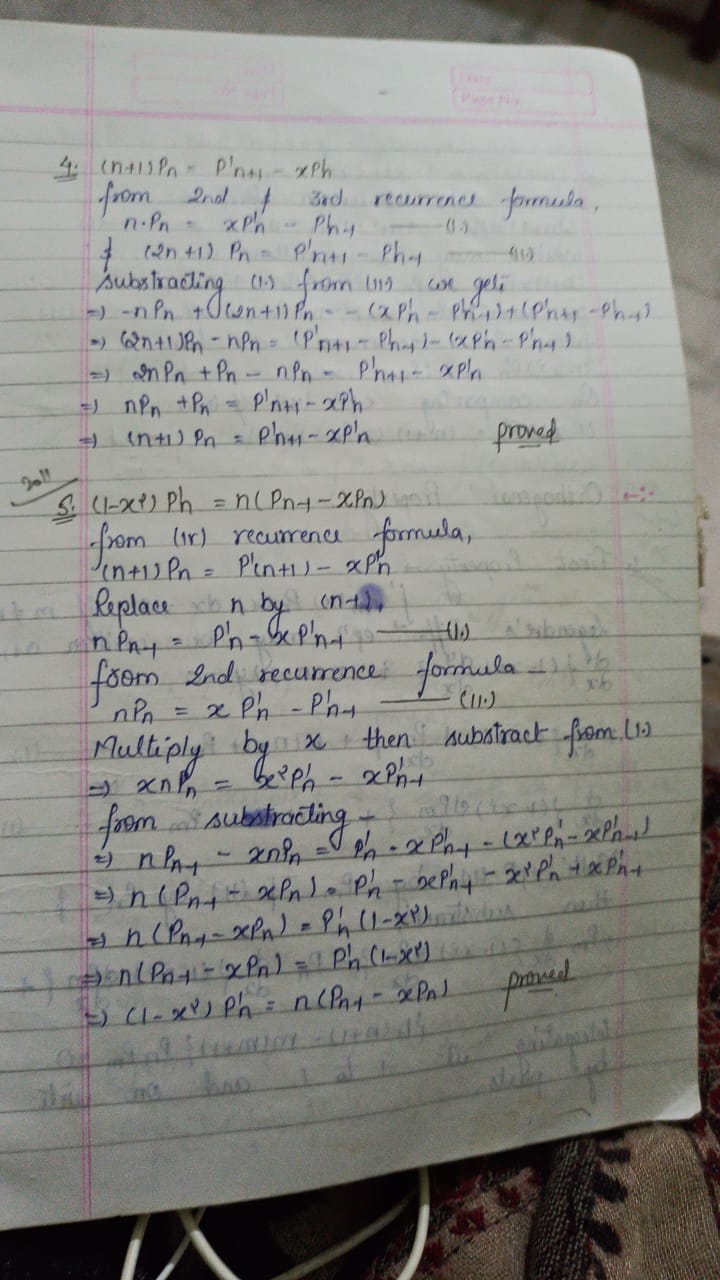 4. (n+1)Pn = P'n+1 - xP'n
from 2nd & 3rd recurrence formula,
n.Pn = xP'n - P'n-1 —— (1.)
& (2n+1) Pn = P'n+1 - P'n-1 —— (11.)
substracting (1.) from (11) we get;
⇒ -nPn + (2n+1)Pn = -(xP'n - P'n-1) + (P'n+1 - P'n-1)
⇒ (2n+1)Pn - nPn = (P'n+1 - P'n-1) - (xP'n - P'n-1)
⇒ 2nPn + Pn - nPn = P'n+1 - xP'n
⇒ nPn + Pn = P'n+1 - xP'n
⇒ (n+1) Pn = P'n+1 - xP'n proved
2011
5. (1-x²) P'n = n(Pn-1 - xPn)
from (IV) recurrence formula,
(n+1) Pn = P'(n+1) - xP'n
Replace n by (n-1),
nPn-1 = P'n - xP'n-1 —— (1.)
from 2nd recurrence formula -
nPn = x P'n - P'n-1 —— (11.)
Multiply by x then substract from (1.)
⇒ xnPn = x²P'n - xP'n-1
from substracting -
⇒ nPn-1 - xnPn = P'n - xP'n-1 - (x²P'n - xP'n-1)
⇒ n(Pn-1 - xPn) = P'n - xP'n-1 - x²P'n + xP'n-1
⇒ n(Pn-1 - xPn) = P'n (1-x²)
⇒ n(Pn-1 - xPn) = P'n (1-x²)
⇒ (1-x²) P'n = n(Pn-1 - xPn) proved